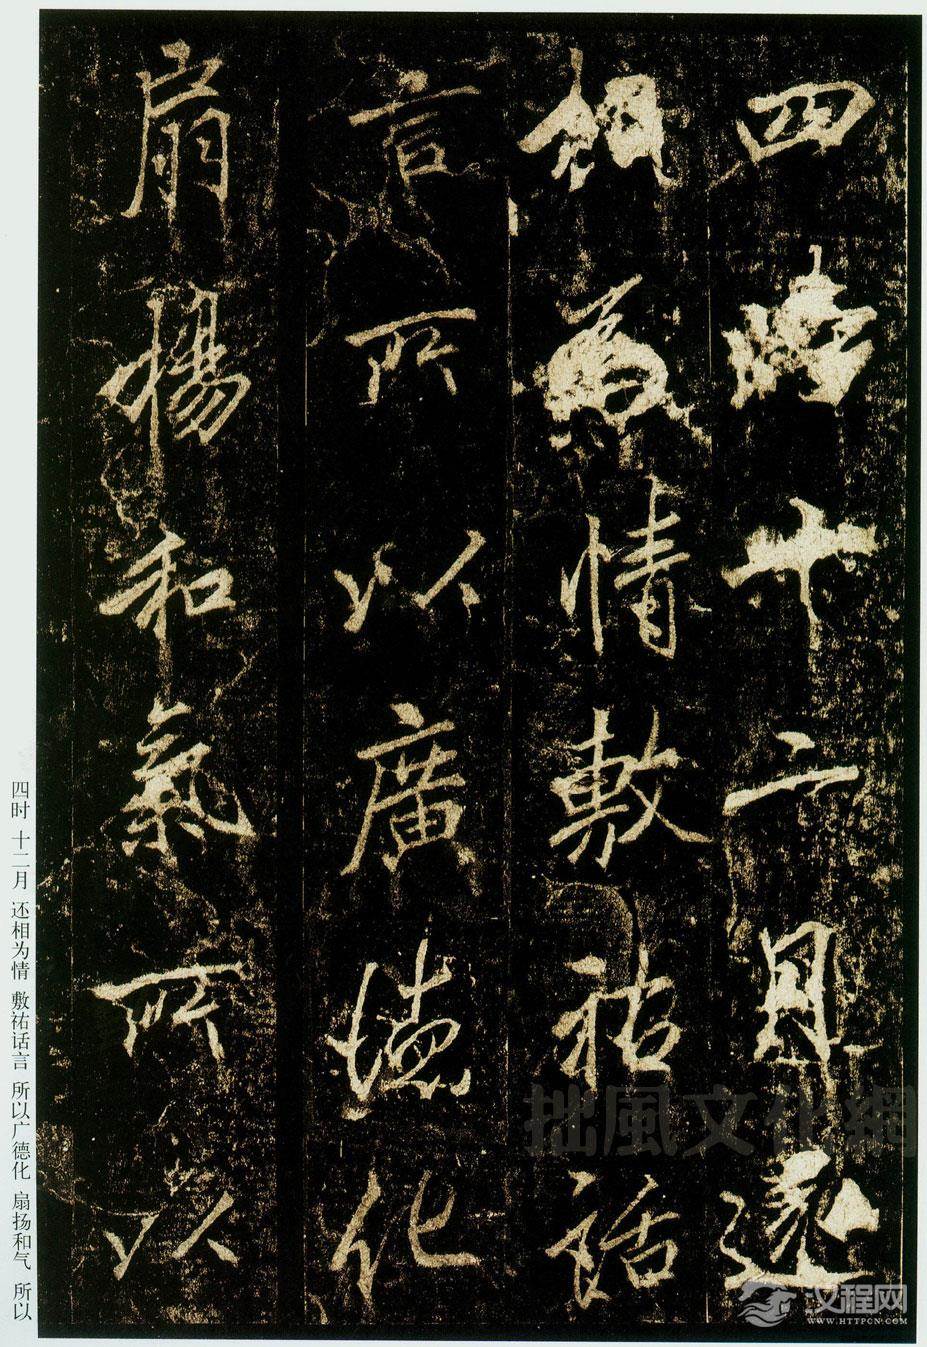 四時十二月還
相為情敷祐話
言所以廣德化
扇揚和氣所以
四时 十二月 还相为情 敷祐话言 所以广德化 扇扬和气 所以
拙風文化網
汉程网
WWW.HTTPCN.COM